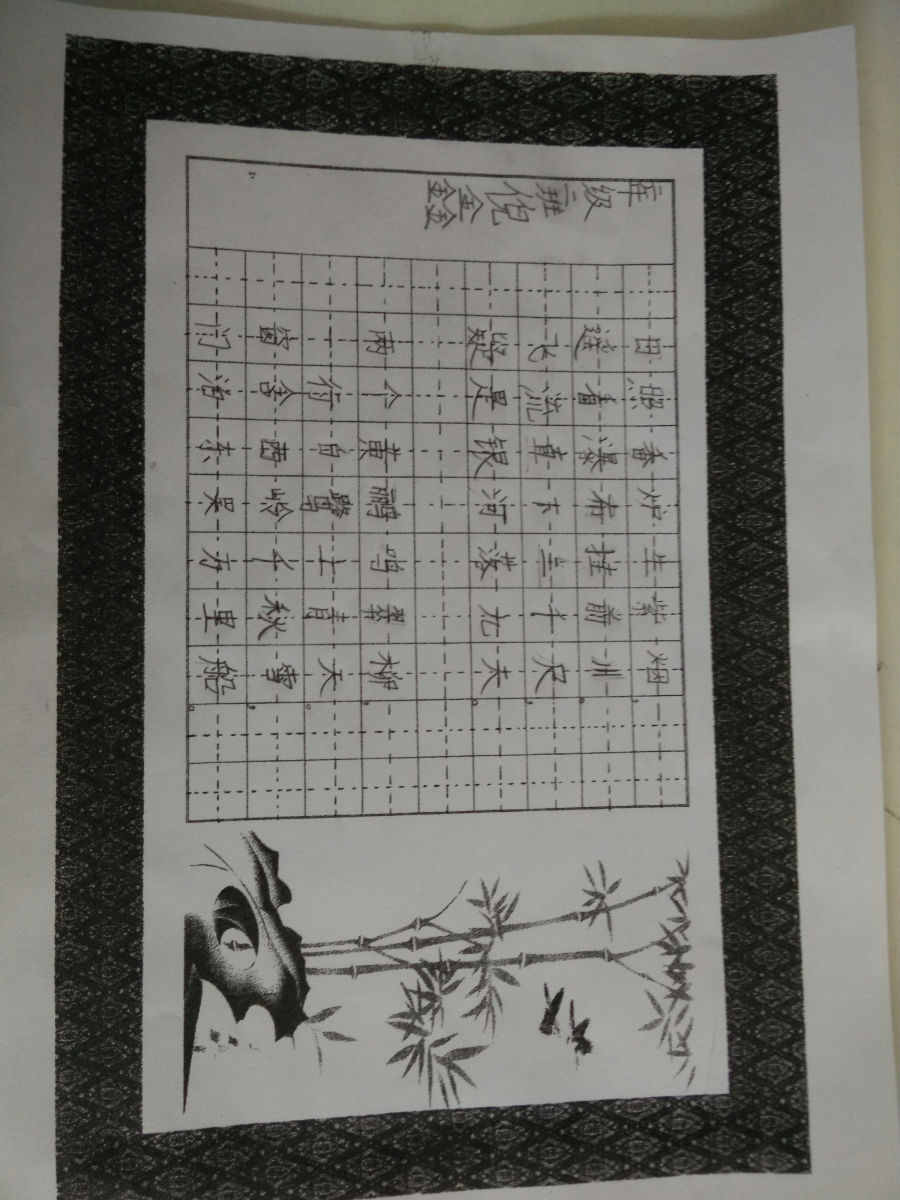 二年级二班倪金鑫
日照香炉生紫烟，
遥看瀑布挂前川。
飞流直下三千尺，
疑是银河落九天。
两个黄鹂鸣翠柳，
一行白鹭上青天。
窗含西岭千秋雪，
门泊东吴万里船。